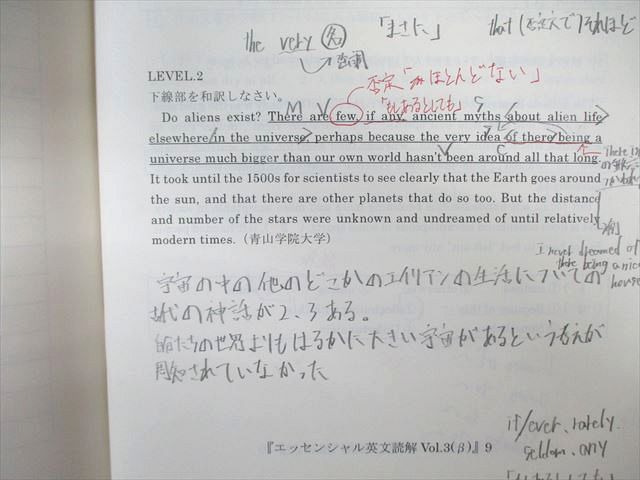 the very 名
「まさに」
that (否定文で) それほど
LEVEL.2
否定「ほとんどない」
下線部を和訳しなさい。
M V
「もしあるとしても」
S
Do aliens exist? There are few, if any, ancient myths about alien life
elsewhere in the universe, perhaps because the very idea of there being a
V C
universe much bigger than our own world hasn't been around all that long.
It took until the 1500s for scientists to see clearly that the Earth goes around
the sun, and that there are other planets that do so too. But the distance
and number of the stars were unknown and undreamed of until relatively
modern times. (青山学院大学)
I never dreamed of
there being a nice
house
宇宙の中の他のどこかのエイリアンの生活についての
古代の神話が2、3ある。
自分たちの世界よりもはるかに大きい宇宙があるという考えが
周知されていなかった
if/ever, rarely.
seldom, any
『エッセンシャル英文読解 Vol.3(β)』9